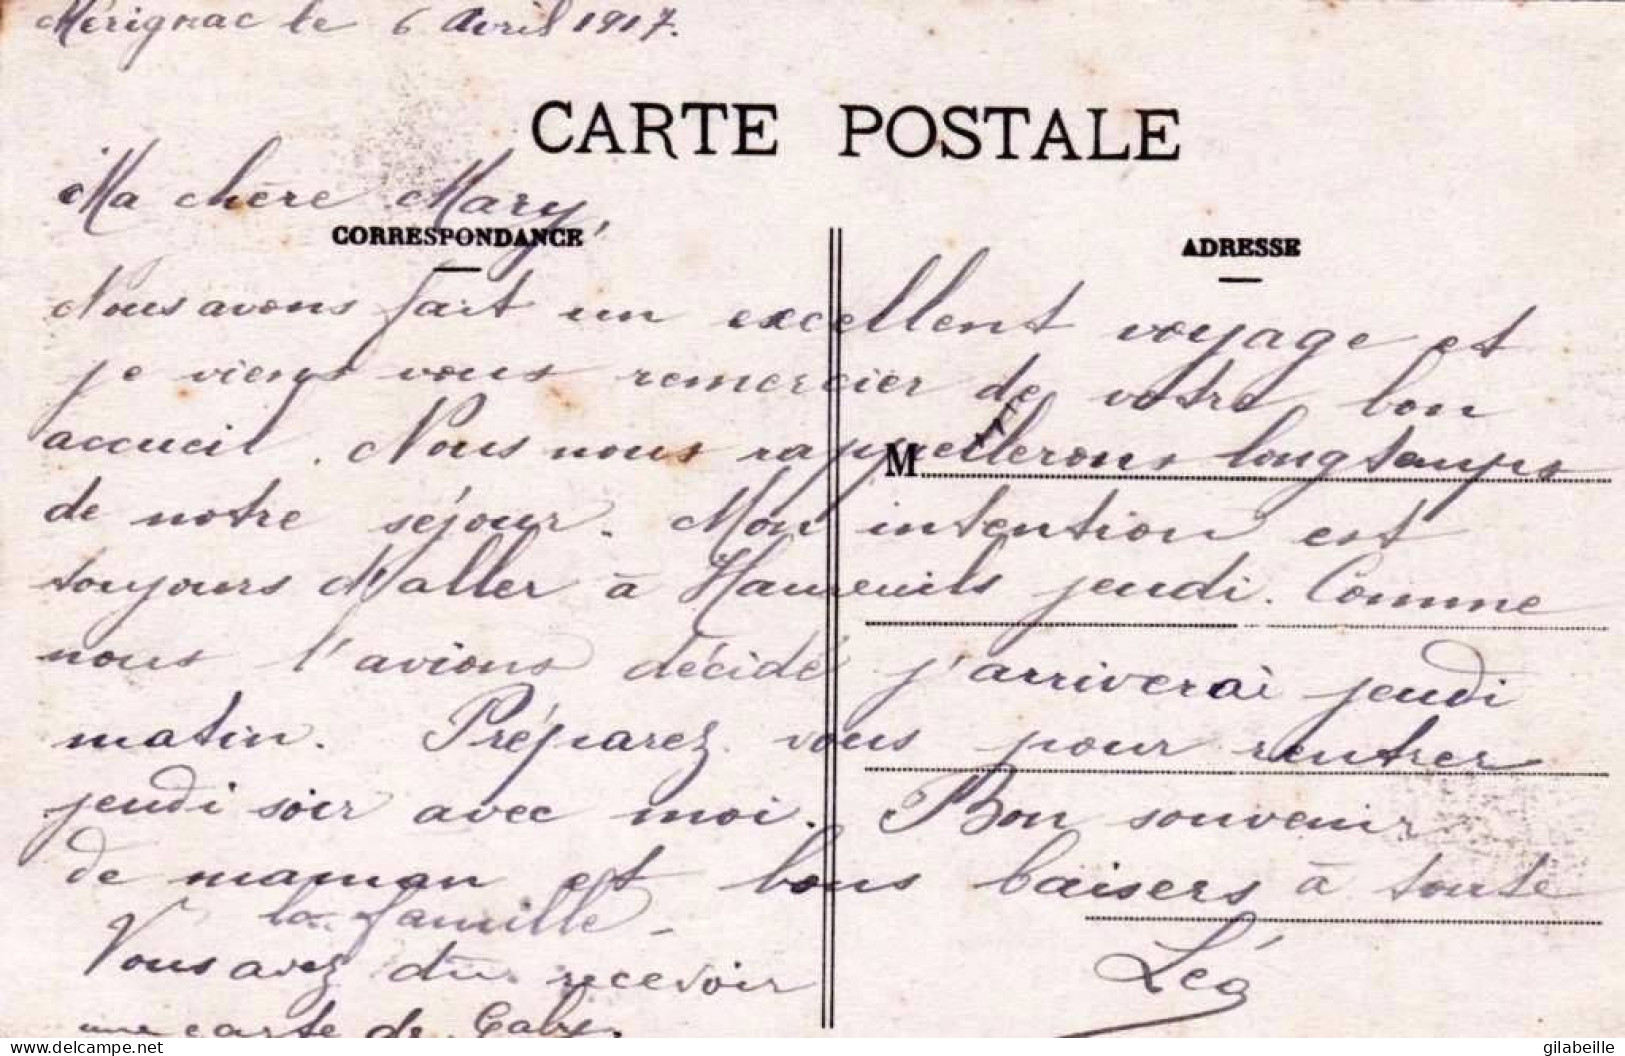 Mérignac le 6 Avril 1917.
CARTE POSTALE
Ma chère Mary,
CORRESPONDANCE
ADRESSE
Nous avons fait un excellent voyage et
je viens vous remercier de votre bon
accueil. Nous nous rappellerons longtemps
M
de notre séjour. Mon intention est
toujours d'aller à jeudi. Comme
nous l'avions décidé j'arriverai jeudi
matin. Préparez vous pour rentrer
jeudi soir avec moi. Bon souvenir
de maman et bons baisers à toute
la famille.
Léo
Vous avez dû recevoir
une carte de Gaby.
gilabeille